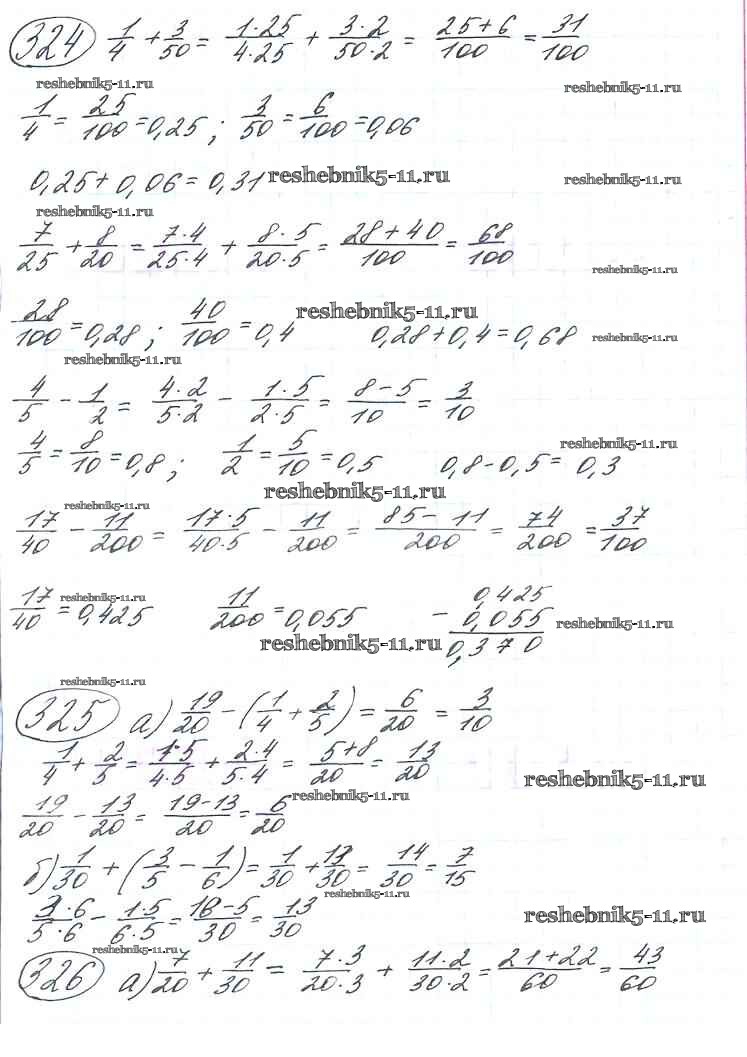 324 1/4 + 3/50 = 1·25/4·25 + 3·2/50·2 = 25+6/100 = 31/100
reshebnik5-11.ru reshebnik5-11.ru
1/4 = 25/100 = 0,25 ; 3/50 = 6/100 = 0,06
0,25 + 0,06 = 0,31 reshebnik5-11.ru reshebnik5-11.ru
reshebnik5-11.ru
7/25 + 8/20 = 7·4/25·4 + 8·5/20·5 = 28+40/100 = 68/100
reshebnik5-11.ru
28/100 = 0,28 ; 40/100 = 0,4 reshebnik5-11.ru 0,28 + 0,4 = 0,68 reshebnik5-11.ru
reshebnik5-11.ru
4/5 - 1/2 = 4·2/5·2 - 1·5/2·5 = 8-5/10 = 3/10
reshebnik5-11.ru
4/5 = 8/10 = 0,8 ; 1/2 = 5/10 = 0,5 0,8 - 0,5 = 0,3
reshebnik5-11.ru
reshebnik5-11.ru
17/40 - 11/200 = 17·5/40·5 - 11/200 = 85-11/200 = 74/200 = 37/100
reshebnik5-11.ru
17/40 = 0,425 11/200 = 0,055 - 0,425
0,055 reshebnik5-11.ru
reshebnik5-11.ru 0,370
reshebnik5-11.ru
325 а) 19/20 - (1/4 + 2/5) = 6/20 = 3/10
1/4 + 2/5 = 1·5/4·5 + 2·4/5·4 = 5+8/20 = 13/20
reshebnik5-11.ru
19/20 - 13/20 = 19-13/20 = 6/20 reshebnik5-11.ru
б) 1/30 + (3/5 - 1/6) = 1/30 + 13/30 = 14/30 = 7/15
reshebnik5-11.ru
3·6/5·6 - 1·5/6·5 = 18-5/30 = 13/30 reshebnik5-11.ru
reshebnik5-11.ru
326 а) 7/20 + 11/30 = 7·3/20·3 + 11·2/30·2 = 21+22/60 = 43/60